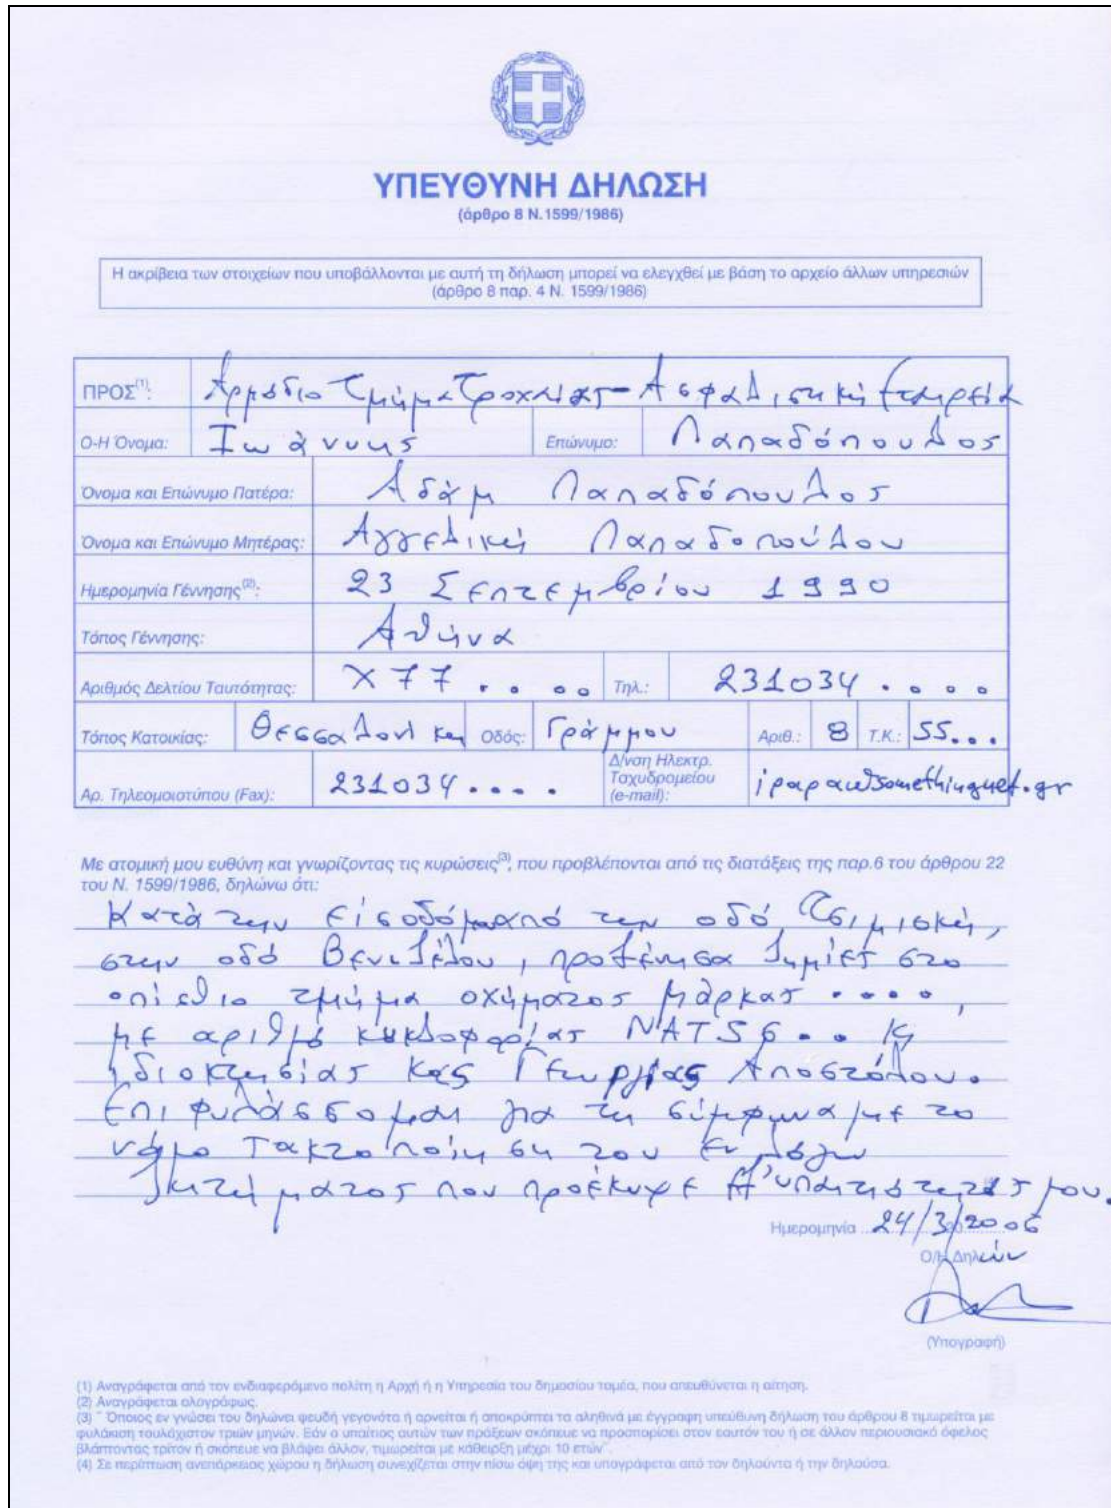 ΥΠΕΥΘΥΝΗ ΔΗΛΩΣΗ
(άρθρο 8 Ν.1599/1986)
Η ακρίβεια των στοιχείων που υποβάλλονται με αυτή τη δήλωση μπορεί να ελεγχθεί με βάση το αρχείο άλλων υπηρεσιών
(άρθρο 8 παρ. 4 Ν. 1599/1986)
ΠΡΟΣ(1): Αρμόδιο Τμήμα Τροχαίας - Ασφαλιστική Εταιρεία
Ο-Η Όνομα: Ιωάννης Επώνυμο: Παπαδόπουλος
Όνομα και Επώνυμο Πατέρα: Αδάμ Παπαδόπουλος
Όνομα και Επώνυμο Μητέρας: Αγγελική Παπαδοπούλου
Ημερομηνία Γέννησης(2): 23 Σεπτεμβρίου 1990
Τόπος Γέννησης: Αθήνα
Αριθμός Δελτίου Ταυτότητας: Χ77..... Τηλ.: 231034....
Τόπος Κατοικίας: Θεσσαλονίκη Οδός: Γράμμου Αριθ.: 8 Τ.Κ.: 55...
Αρ. Τηλεομοιοτύπου (Fax): 231034.... Δ/νση Ηλεκτρ. Ταχυδρομείου (e-mail): ipapa@somethingnet.gr
Με ατομική μου ευθύνη και γνωρίζοντας τις κυρώσεις(3), που προβλέπονται από τις διατάξεις της παρ.6 του άρθρου 22
του Ν. 1599/1986, δηλώνω ότι:
Κατά την είσοδό μου από την οδό Τσιμισκή,
στην οδό Βενιζέλου, προξένησα ζημιές στο
οπίσθιο τμήμα οχήματος μάρκας ....,
με αριθμό κυκλοφορίας ΝΑΤ56..
ιδιοκτησίας Κας Γεωργίας Αποστόλου.
Επιφυλάσσομαι για τη σύμφωνα με το
νόμο τακτοποίηση του εν λόγω
ζητήματος που προέκυψε εξ'υπαιτιότητάς μου.
Ημερομηνία 24/3/2006
Ο/Η Δηλών
(Υπογραφή)
(1) Αναγράφεται από τον ενδιαφερόμενο πολίτη η Αρχή ή η Υπηρεσία του δημοσίου τομέα, που απευθύνεται η αίτηση.
(2) Αναγράφεται ολογράφως.
(3) "Όποιος εν γνώσει του δηλώνει ψευδή γεγονότα ή αρνείται ή αποκρύπτει τα αληθινά με έγγραφη υπεύθυνη δήλωση του άρθρου 8 τιμωρείται με
φυλάκιση τουλάχιστον τριών μηνών. Εάν ο υπαίτιος αυτών των πράξεων σκόπευε να προσπορίσει στον εαυτόν του ή σε άλλον περιουσιακό όφελος
βλάπτοντας τρίτον ή σκόπευε να βλάψει άλλον, τιμωρείται με κάθειρξη μέχρι 10 ετών".
(4) Σε περίπτωση ανεπάρκειας χώρου η δήλωση συνεχίζεται στην πίσω όψη της και υπογράφεται από τον δηλούντα ή την δηλούσα.